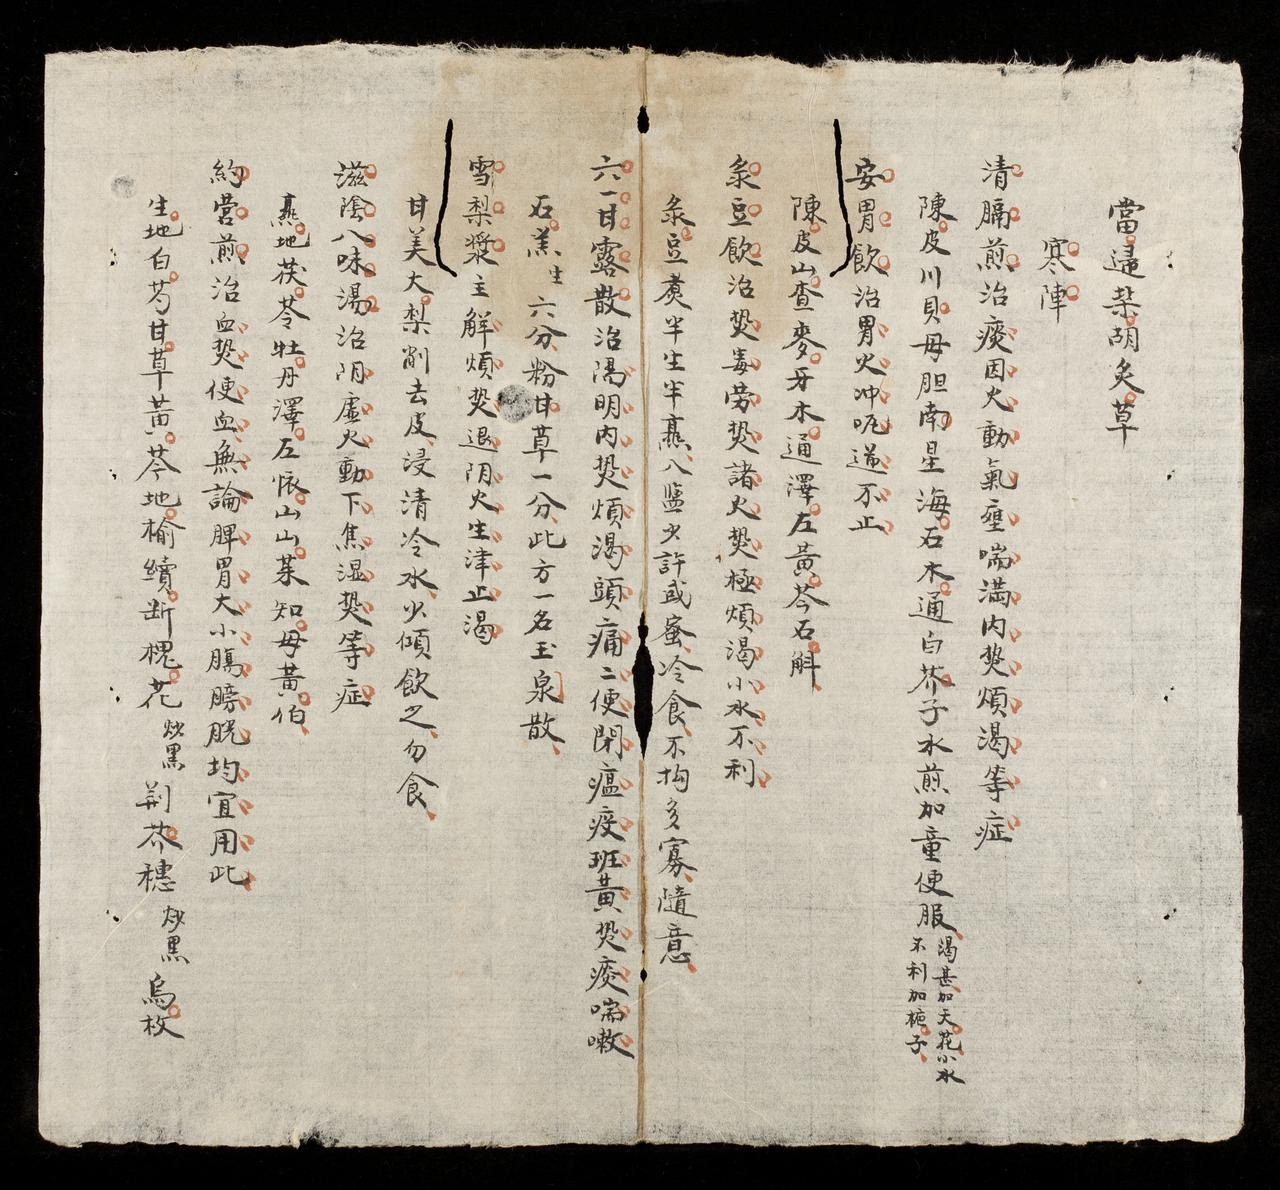 當歸柴胡炙草
寒陣
清膈煎治痰因火動氣壅喘滿內𤍠煩渴等症
陳皮川貝母胆南星海石木通白芥子水煎加童便服渴甚加天花小水
不利加梔子
安胃飲治胃火冲呃逆不止
陳皮山查麥牙木通澤左黃芩石斛
菉豆飲治𤍠毒勞𤍠諸火𤍠極煩渴小水不利
菉豆煮半生半熹八盐少許或蜜冷食不拘多寡隨意
六一甘露散治陽明內𤍠煩渴頭痛二便閉瘟疫班黃𤍠痰喘嗽
石羔生六分粉甘草一分此方一名玉泉散
雪梨漿主解煩𤍠退阴火生津止渴
甘美大梨削去皮浸清冷水少傾飲之勿食
滋陰八味湯治阴虛火動下焦湿𤍠等症
熹地茯苓牡丹澤左懷山山茱知母黃伯
約营煎治血𤍠便血無論脾胃大小腸膀胱均宜用此
生地白芍甘草黃芩地榆續断槐花炒黑荊芥穗炒黑烏枚